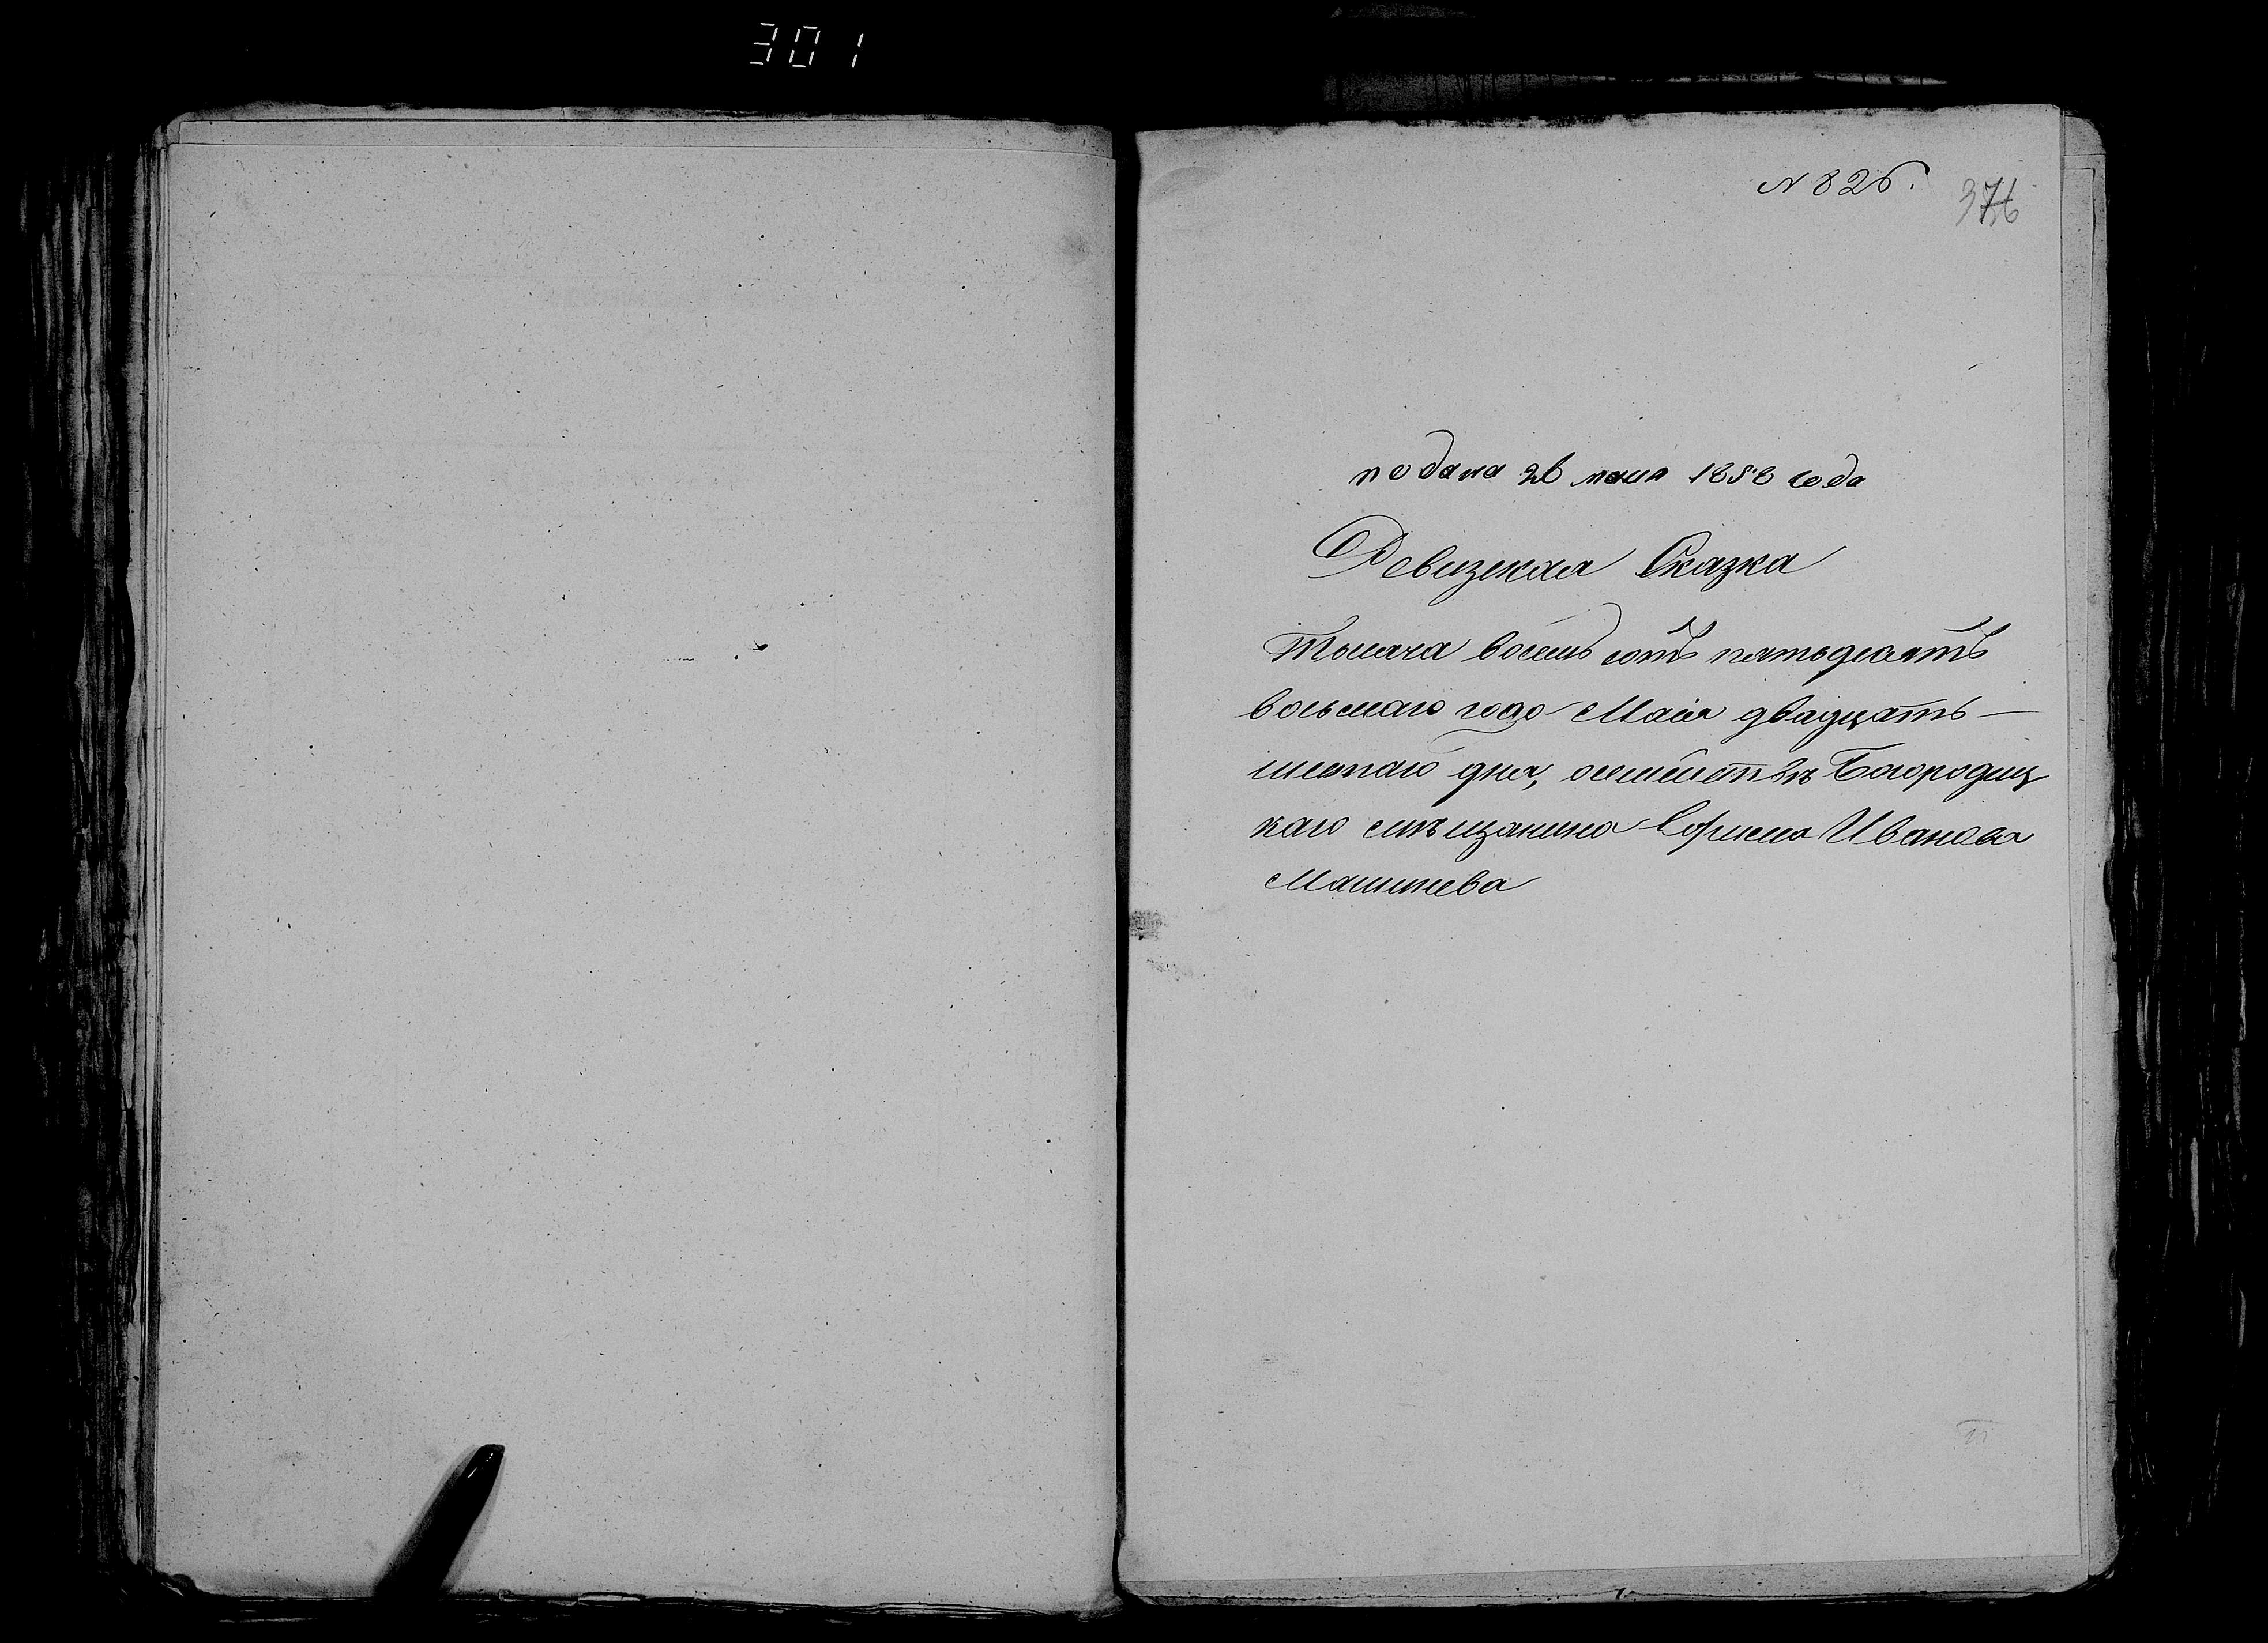 301
N 826.
376
подана 26 мая 1858 года
Ревизская Сказка
Тысяча восемь сотъ пятьдесятъ
восьмаго года Маія двадцать —
шестаго дня, осемействѣ Богородиц
каго мѣщанина Ивана